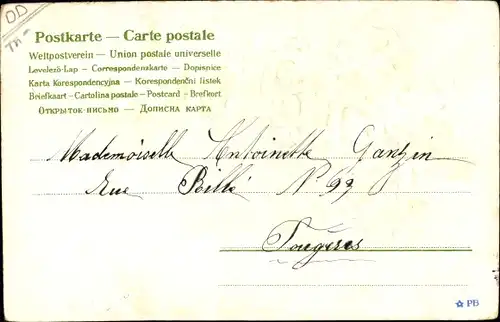 OD
Postkarte — Carte postale
Weltpostverein — Union postale universelle
Levelező-Lap — Correspondenzkarte — Dopisnice
Karta Korespondencyjna — Korespondenční listek
Briefkaart — Cartolina postale — Postcard — Brefkort
Открыток-письмо — Дописна карта
Mademoiselle Antoinette Ganzin
Rue Billé N° 99
Fougères
PB